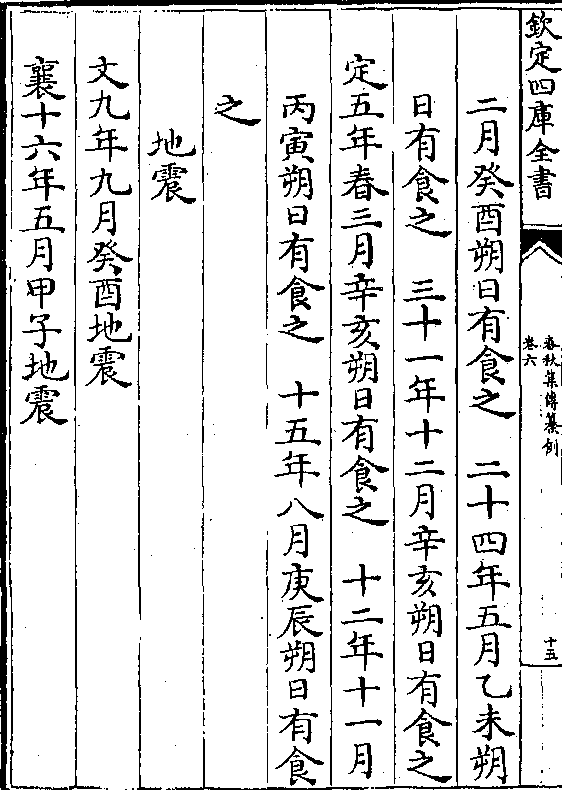 欽定四庫全書
春秋集傳纂例
卷六
十五
二月癸酉朔日有食之 二十四年五月乙未朔
日有食之 三十一年十二月辛亥朔日有食之
定五年春三月辛亥朔日有食之 十二年十一月
丙寅朔日有食之 十五年八月庚辰朔日有食
之
地震
文九年九月癸酉地震
襄十六年五月甲子地震